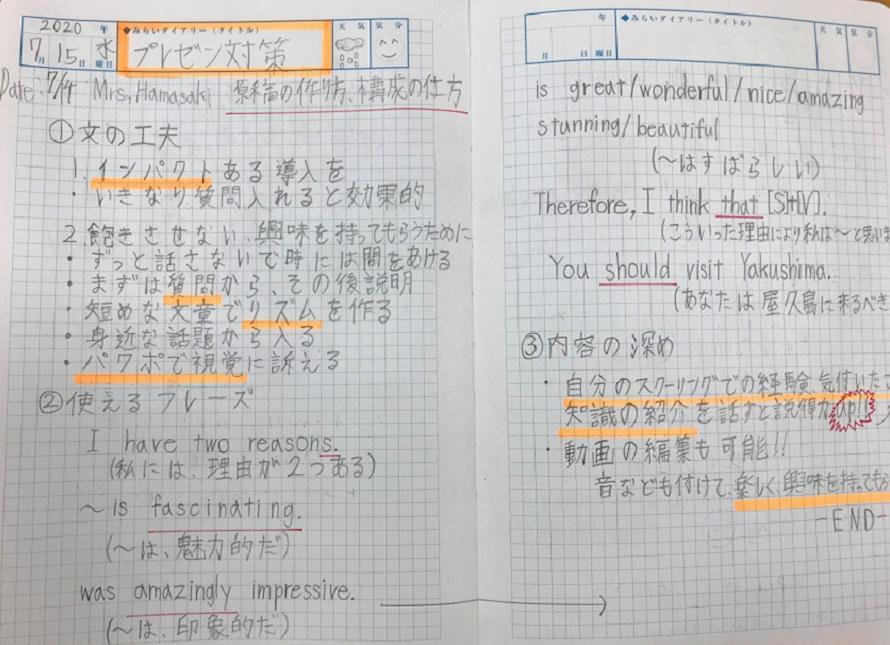 2020 年 ◆みらいダイアリー(タイトル) 天 気 気 分
7月 15日 水曜日 プレゼン対策
Date: 7/14 Mrs, Hamasaki 原稿の作り方、構成の仕方
①文の工夫
1. インパクトある導入を
・いきなり質問入れると効果的
2. 飽きさせない、興味を持ってもらうために
・ずっと話さないで時には間をあける
・まずは質問から、その後説明
・短めな文章でリズムを作る
・身近な話題から入る
・パワポで視覚に訴える
②使えるフレーズ
I have two reasons.
(私には、理由が2つある)
〜is fascinating.
(〜は、魅力的だ)
was amazingly impressive.
(〜は、印象的だ)
年 ◆みらいダイアリー(タイトル) 天 気 気 分
月 日 曜日
is great/wonderful/nice/amazing
stunning/beautiful
(〜はすばらしい)
Therefore, I think that [S+V].
(こういった理由により私は〜と思いま
You should visit Yakushima.
(あなたは屋久島に来るべき
③内容の深め
・自分のスクーリングでの経験、気付いた
知識の紹介を話すと説得力up!!
・動画の編集も可能!!
音なども付けて、楽しく、興味を持っても
-END-